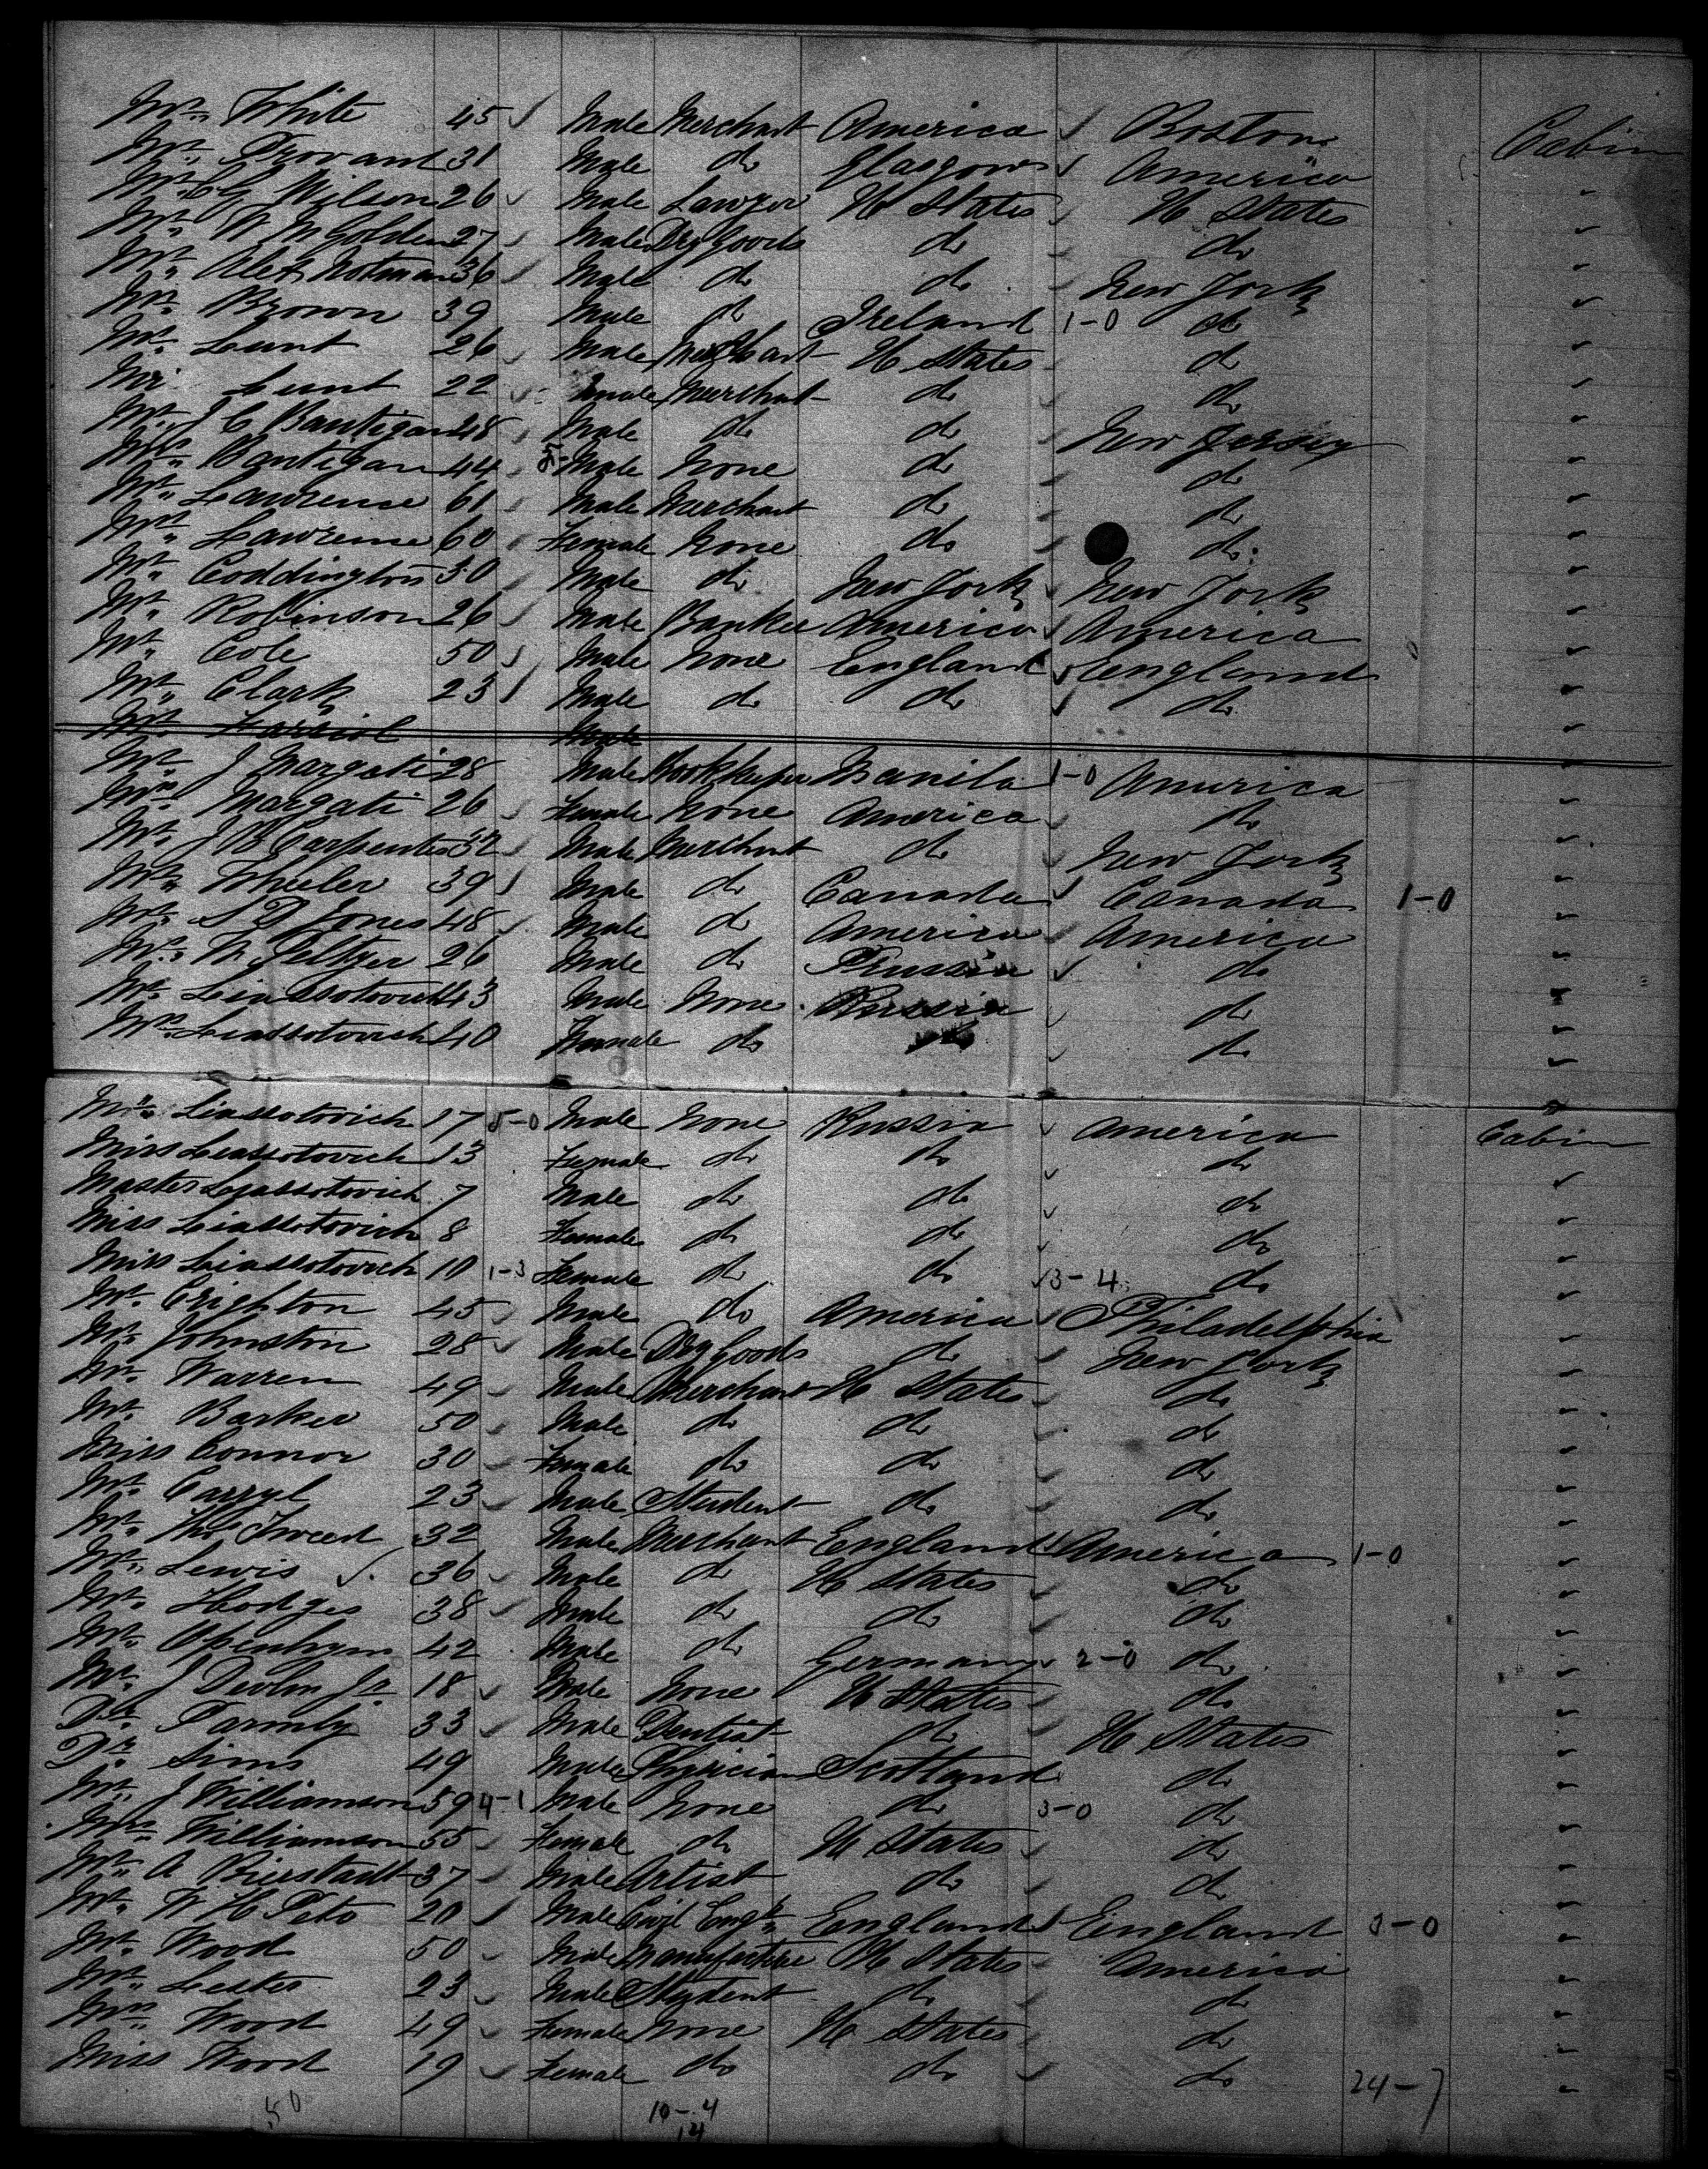 Mr. White 45 Male Merchant America Boston Cabin
Mr. Provant 31 Male do Glasgow America
Mr. Wilson 26 Male Lawyer U States U States
Mr. W M Golden 27 Male Dry Goods do do
Mr. Alex Notman 36 Male do do New York
Mr. Brown 39 Male do Ireland 1-0 do
Mr. Lunt 26 Male Merchant U States do
Lunt 22 Female Merchant do do
Mr. J C Bantigan 48 Male do do New Jersey
Mrs. Bantigan 44 Male None do do
Mr. Lawrence 61 Male Merchant do do
Mrs. Lawrence 60 Female None do do
Mr. Coddington 30 Male do New York New York
Mr. Robinson 26 Male Banker America America
Mr. Cole 50 Male None England England
Mr. Clark 23 Male do do do
Mr. Male
Mr. J Margati 28 Male Bookkeeper Manila 1-0 America
Mrs. Margati 26 Female None America do
Mr. J W Carpenter 32 Male Merchant do New York
Mr. Wheeler 39 Male do Canada Canada 1-0
Mr. S D Jones 48 Male do America America
Mr. W. Peltzer 26 Male do Prussia do
Mr. Liassotovich 43 Male None Russia do
Mrs. Liassotovich 40 Female do do
Mr. Liassotovich 17 5-0 Male None Russia America Cabin
Miss Liassotovich 13 Female do do do
Master Liassotovich 7 Male do do do
Miss Liassotovich 8 Female do do do
Miss Liassotovich 10 1-3 Female do do 3-4 do
Mr. Crighton 45 Male do America Philadelphia
Mr. Johnston 28 Male Dry Goods do New York
Mr. Warren 49 Male Merchant U States do
Mr. Barker 50 Male do do do
Miss Connor 30 Female do do do
Mr. Carryl 23 Male Student do do
Mr. Thos Tweed 32 Male Merchant England America 1-0
Mr. Lewis 36 Male do U States do
Mr. Hodges 38 Male do do do
Mr. Openhym 42 Male do Germany 2-0 do
Mr. J Devlin Jr. 18 Male None U States do
Dr. Parmly 33 Male Dentist do U States
Dr. Sims 49 Male Physician Scotland do
Mr. J Williamson 59 4-1 Male None do 3-0 do
Mrs. Williamson 55 Female do U States do
Mr. A Bierstadt 37 Male Artist do do
Mr. W H Peto 20 Male Civil Engr. England England 3-0
Mr. Wood 50 Male Manufacturer U States America
Mr. Lester 23 Male Student do do
Mrs. Wood 49 Female None U States do
Miss Wood 19 Female do do do 24-7
50 10-4
14